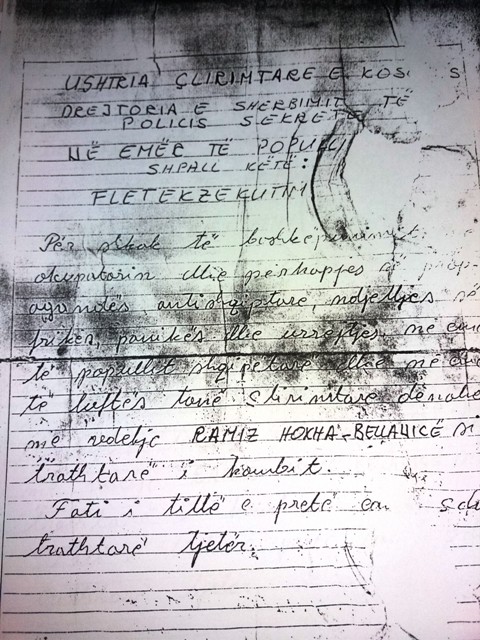 USHTRIA ÇLIRIMTARE E KOS S
DREJTORIA E SHËRBIMIT TË
POLICIS SEKRET
NË EMËR TË POPULLI
SHPALL KËTË:
FLETEKZEKUTIM
Për shkak të
okupatorin dhe përhapjes së prop
agandës antishqiptare, ndjelljes së
frikës, panikës dhe urrejtjes në
të popullit shqipetarë dhe në
të luftës tonë çlirimtare dënohe
me vdekje RAMIZ HOXHA-BELLANICË si
trathtarë i kombit.
Fati i tillë e pretë
trathtarë tjetër.